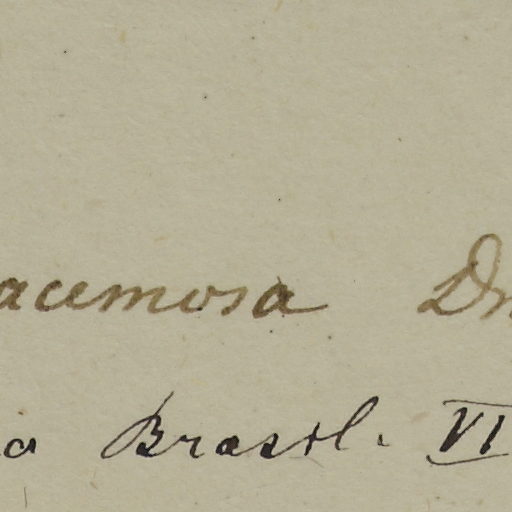 acemosa D
a Brasil. VI